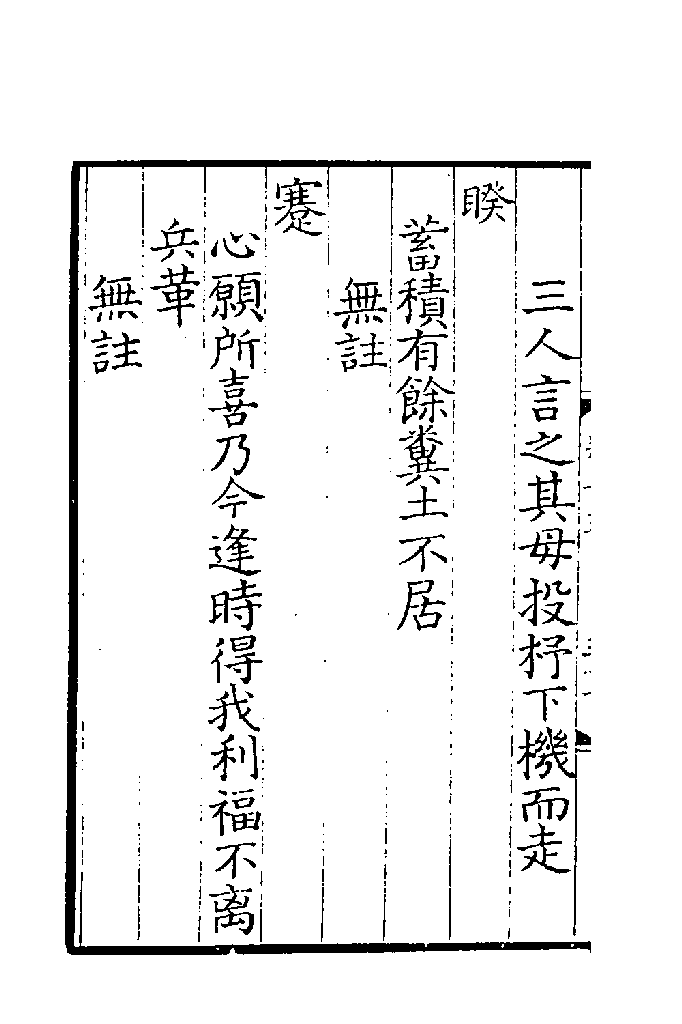 三人言之其毋投杼下機而走
睽
蓄積有餘糞土不居
無註
蹇
心願所喜乃今逢時得我利福不离
兵革
無註